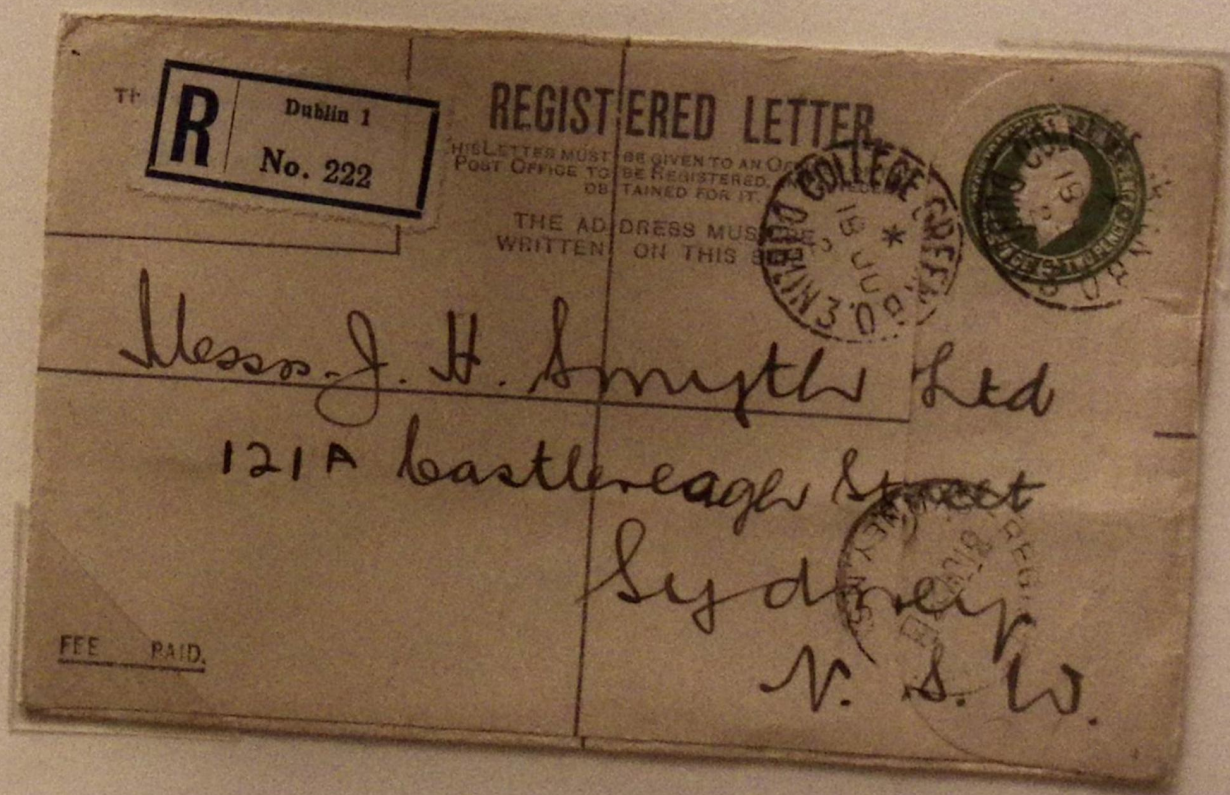 R
Dublin 1
No. 222
REGISTERED LETTER.
HIS LETTER MUST BE GIVEN TO AN
POST OFFICE TO BE REGISTERED,
OBTAINED FOR IT.
THE ADDRESS MUST BE
WRITTEN ON THIS
COLLEGE GREEN B.O.
DUBLIN
Messrs. J. H. Smyth Ltd
121A Castlereagh Street
Sydney
N. S. W.
FEE PAID.